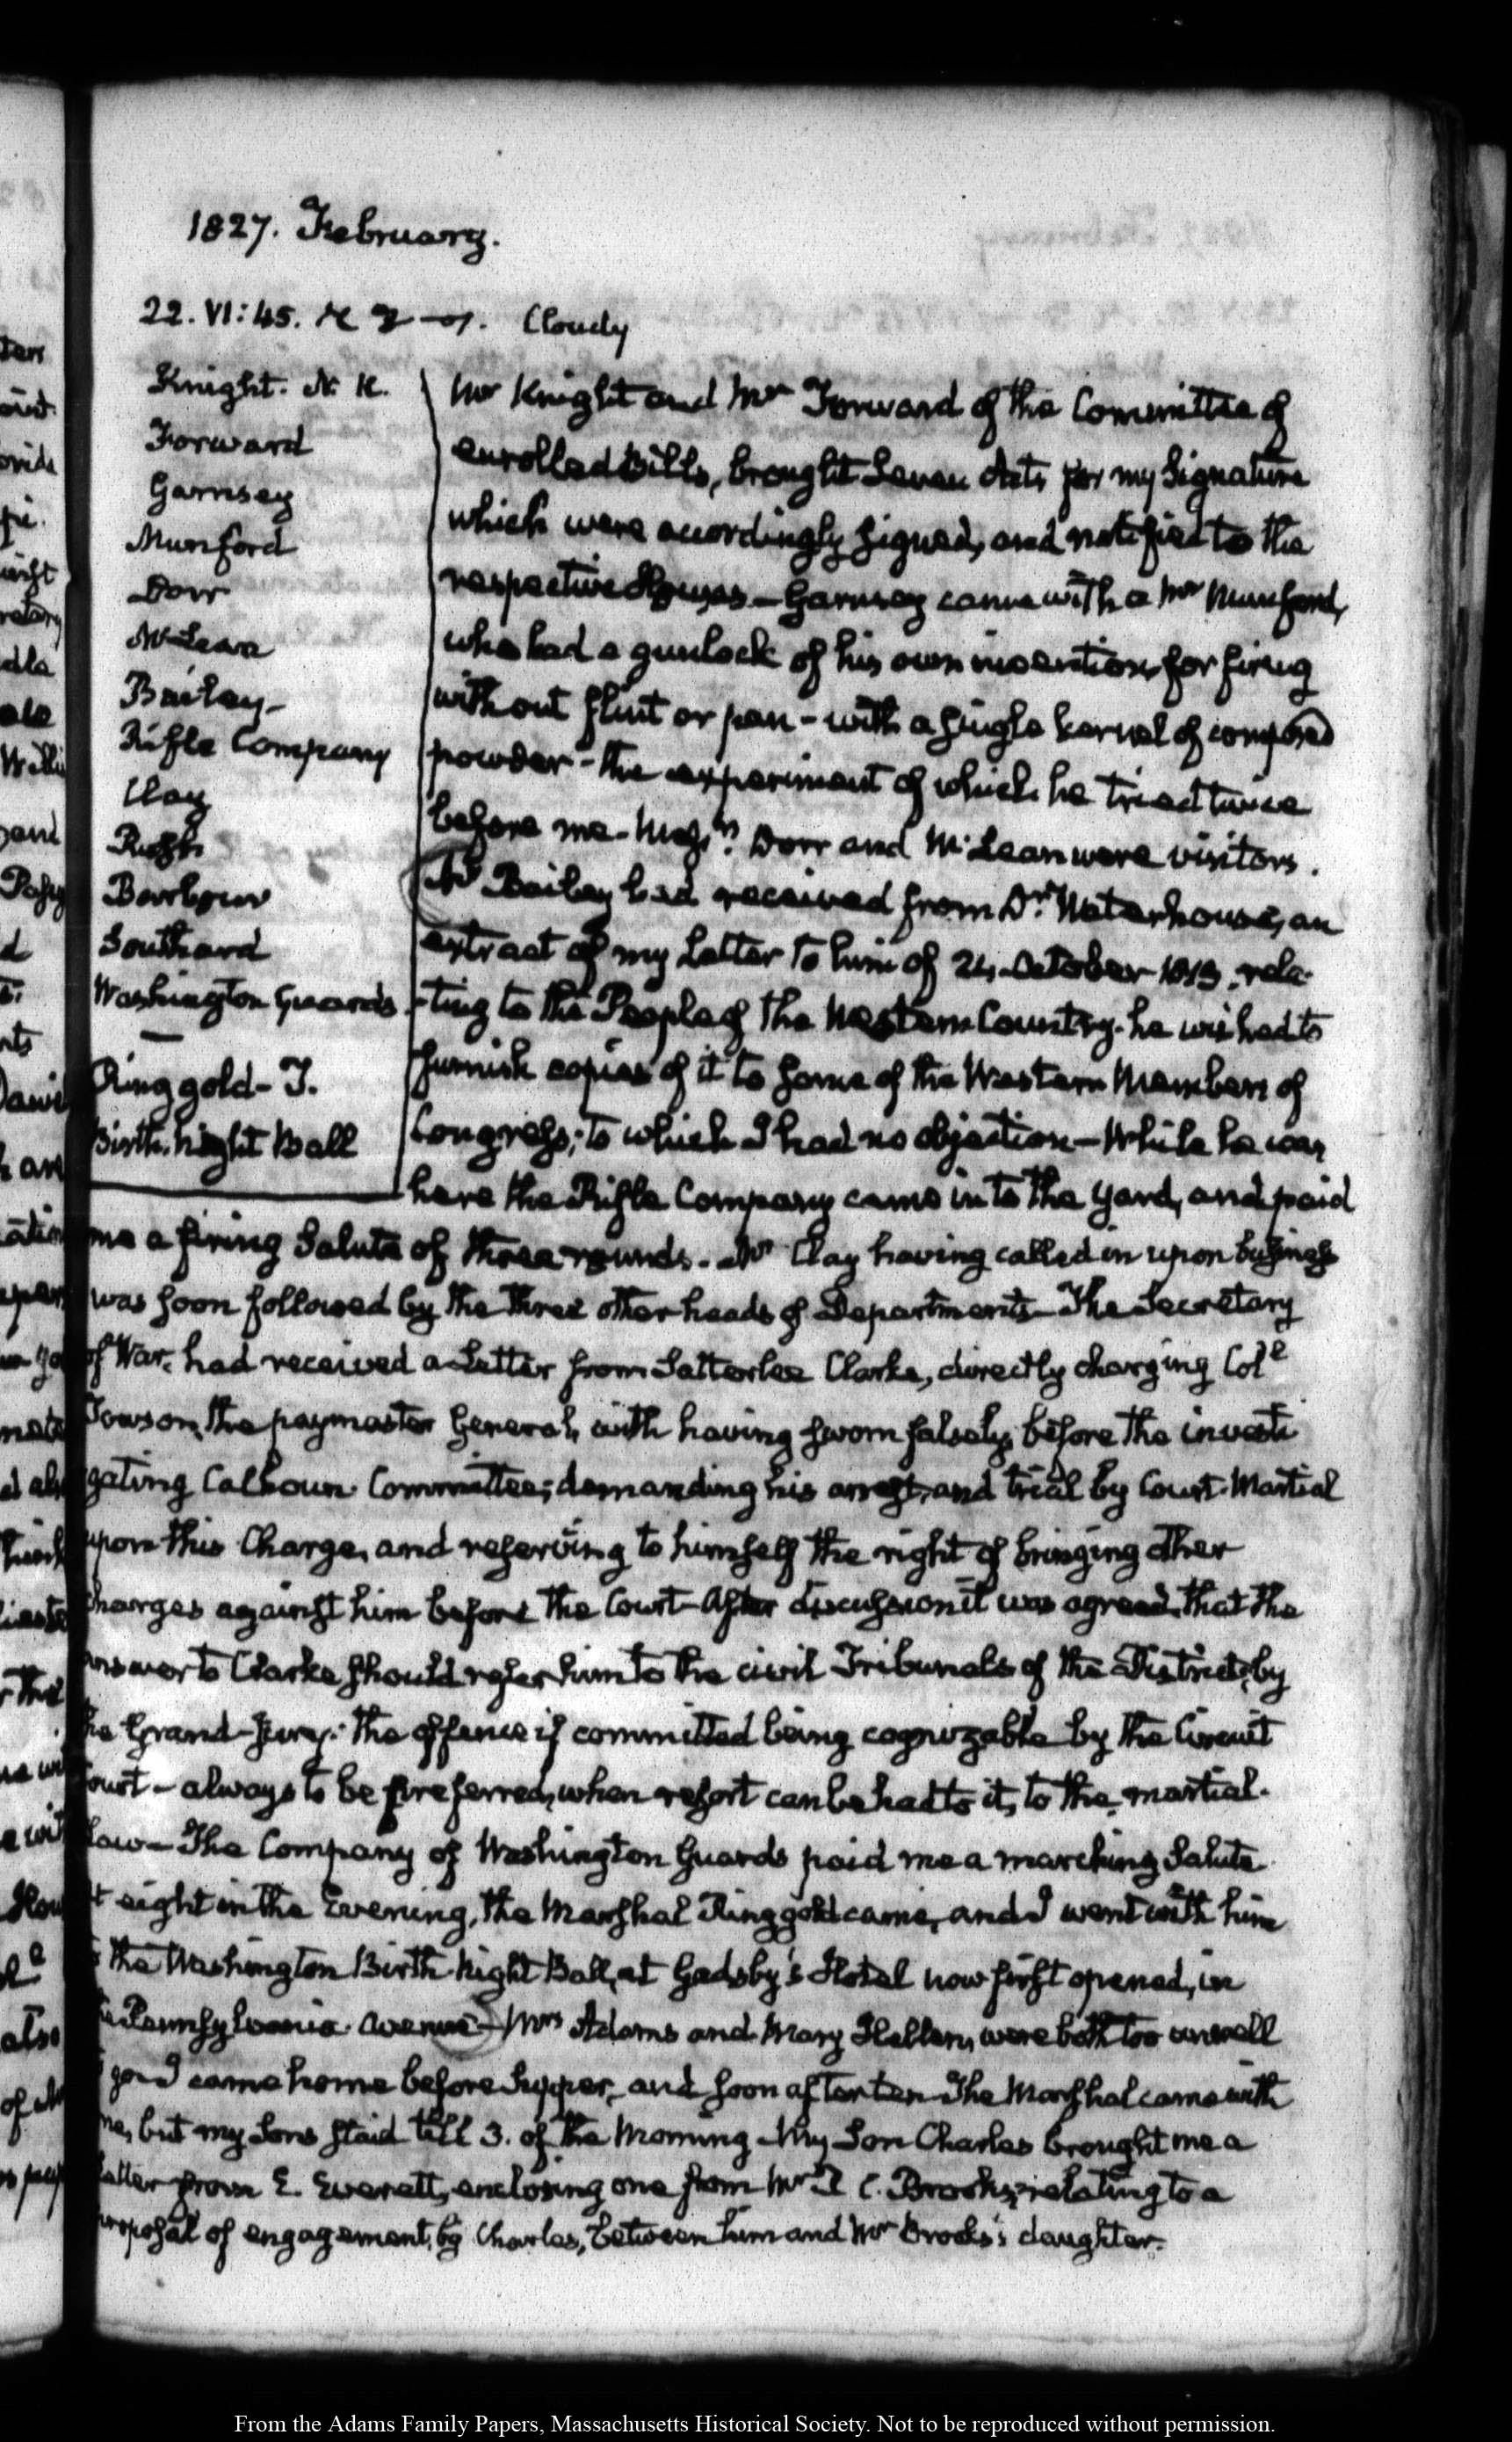 1827. February.
22. VI:45. Cloudy
Knight. N. R.
Forward
Garnsey
Munford
Dorr
McLean
Bailey-
Rifle Company
Clay
Rush
Barbour
Southard
Washington Guards
—
Ringgold- T.
Birth-night Ball
Mr Knight and Mr Forward of the Committee of
enrolled Bills, brought Seven Acts for my Signature
which were accordingly signed, and notified to the
respective Houses — Garnsey came with a Mr Munford,
who had a gunlock of his own invention for firing
without flint or pan - with a single kernel of composed
powder - the experiment of which he tried twice
before me - Messrs. Dorr and McLean were visitors.
Mr Bailey had received from Dr. Waterhouse, an
extract of my Letter to him of 24. October 1813. rela-
-ting to the People of the Western Country. he wished to
furnish copies of it to some of the Western Members of
Congress; to which I had no objection — While he was
here the Rifle Company came into the yard, and paid
me a firing Salute of three rounds. Mr Clay having called in upon business
was soon followed by the three other heads of Departments — The Secretary
of War, had received a Letter from Satterlee Clarke, directly charging Coll
Towson, the paymaster General, with having sworn falsely, before the investi
gating Calhoun Committee; demanding his arrest, and trial by Court-Martial
upon this Charge, and reserving to himself the right of bringing other
charges against him before the Court — After discussion it was agreed, that the
answer to Clarke should refer him to the civil Tribunals of the District, by
the Grand-Jury: the offence if committed being cognizable by the Circuit
Court — always to be preferred, when resort can be had to it, to the martial-
law — The Company of Washington Guards paid me a marching Salute.
At eight in the Evening, the Marshal Ringgold came, and I went with him
to the Washington Birth-Night Ball, at Gadsby's Hotel now first opened, in
the Pennsylvania Avenue — Mrs Adams and Mary Hellen, were both too unwell
to go — I came home before Supper, and soon after ten — The Marshal came with
me, but my Sons staid till 3. of the Morning — My Son Charles brought me a
letter from E. Everett, enclosing one from Mr P. C. Brooks, relating to a
proposal of engagement, by Charles, between him and Mr Brooks's daughter.
From the Adams Family Papers, Massachusetts Historical Society. Not to be reproduced without permission.